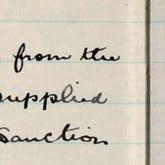 from the
supplied
sanction